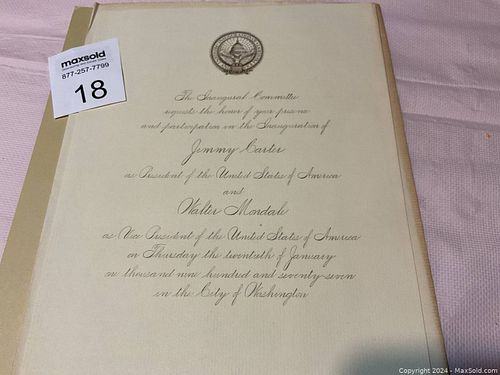 maxsold
877-257-7799
18
The Inaugural Committee
requests the honor of your presence
and participation in the Inauguration of
Jimmy Carter
as President of the United States of America
and
Walter Mondale
as Vice President of the United States of America
on Thursday the twentieth of January
one thousand nine hundred and seventy-seven
in the City of Washington
Copyright 2024 - MaxSold.com